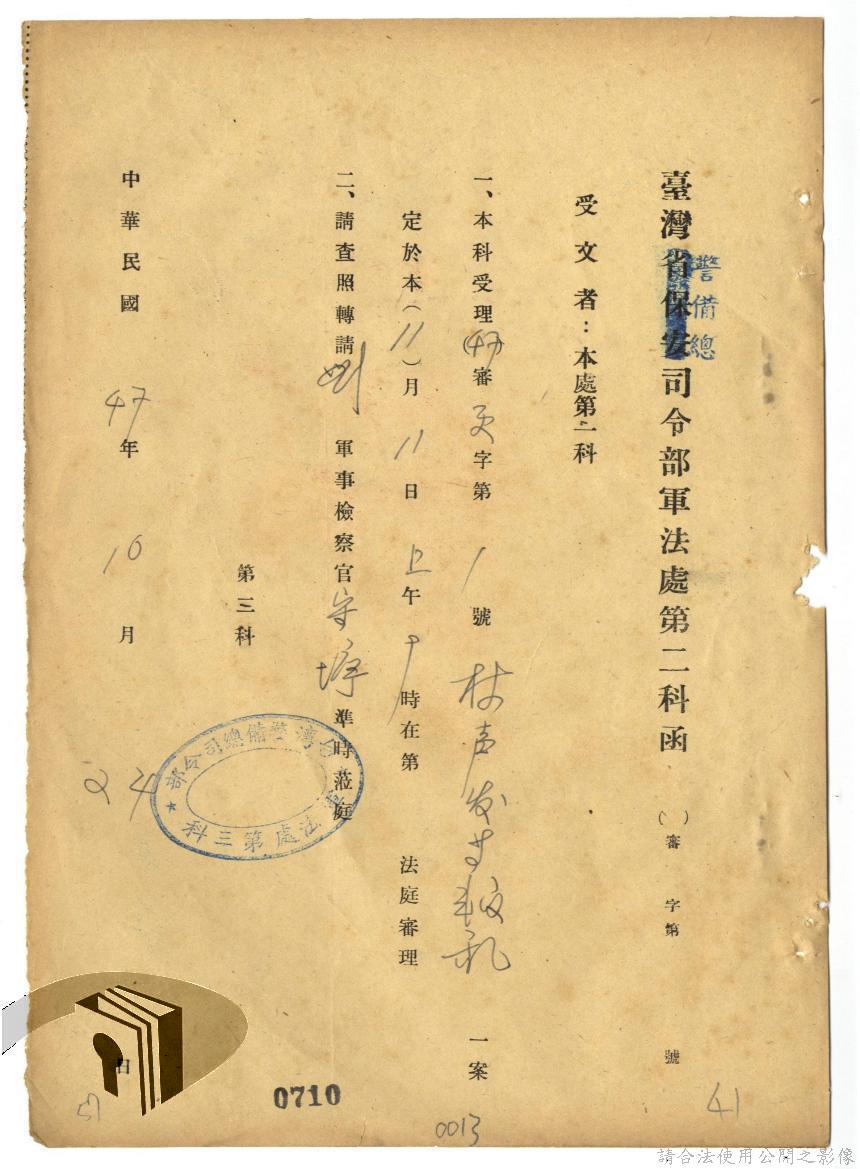 臺灣省保安司令部軍法處第二科函
警備總
( )審字第 號
受文者：本處第二科
一、本科受理(47)審更字第1號林声发等叛乱一案
定於本(11)月11日上午 時在第 法庭審理
二、請查照轉請劉軍事檢察官守墀準時蒞庭
第三科
台灣警備總司令部
軍法處第三科
中華民國47年10月 日
0710
0013
41
請合法使用公開之影像